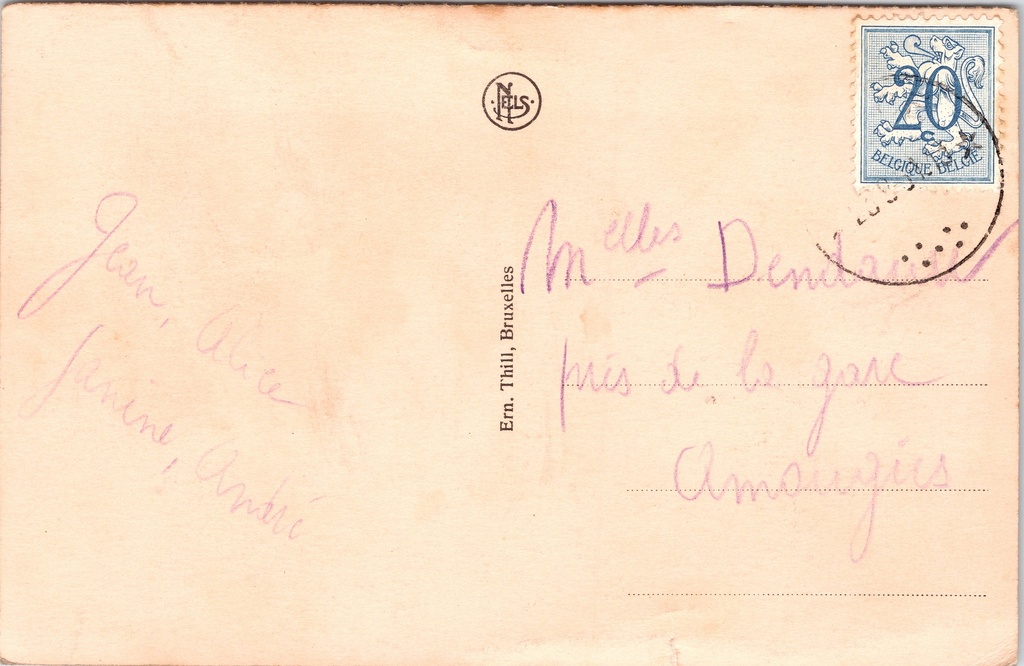 NELS
20
c
BELGIQUE BELGIË
Jean, Alice
Janine, André
Ern. Thill, Bruxelles
Melles
près de la gare
Amougies